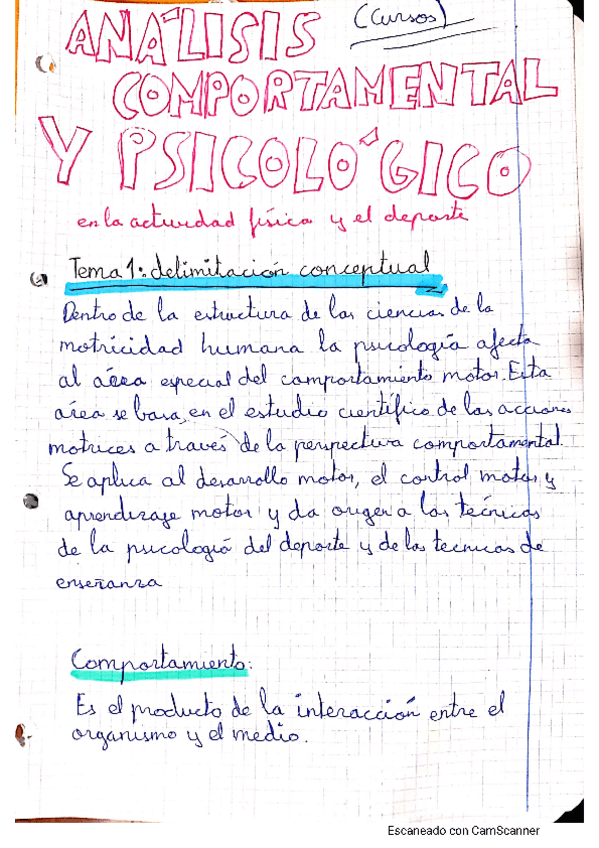 (Cursos)
ANÁLISIS
COMPORTAMENTAL
Y PSICOLÓGICO
en la actividad física y el deporte
Tema 1: delimitación conceptual
Dentro de la estructura de las ciencias de la
motricidad humana la psicología afecta
al aérea especial del comportamiento motor. Esta
área se basa en el estudio científico de las acciones
motrices a través de la perspectiva comportamental.
Se aplica al desarrollo motor, el control motor y
aprendizaje motor y da origen a las técnicas
de la psicología del deporte y de las tecnicas de
enseñanza
Comportamiento:
Es el producto de la interacción entre el
organismo y el medio.
Escaneado con CamScanner